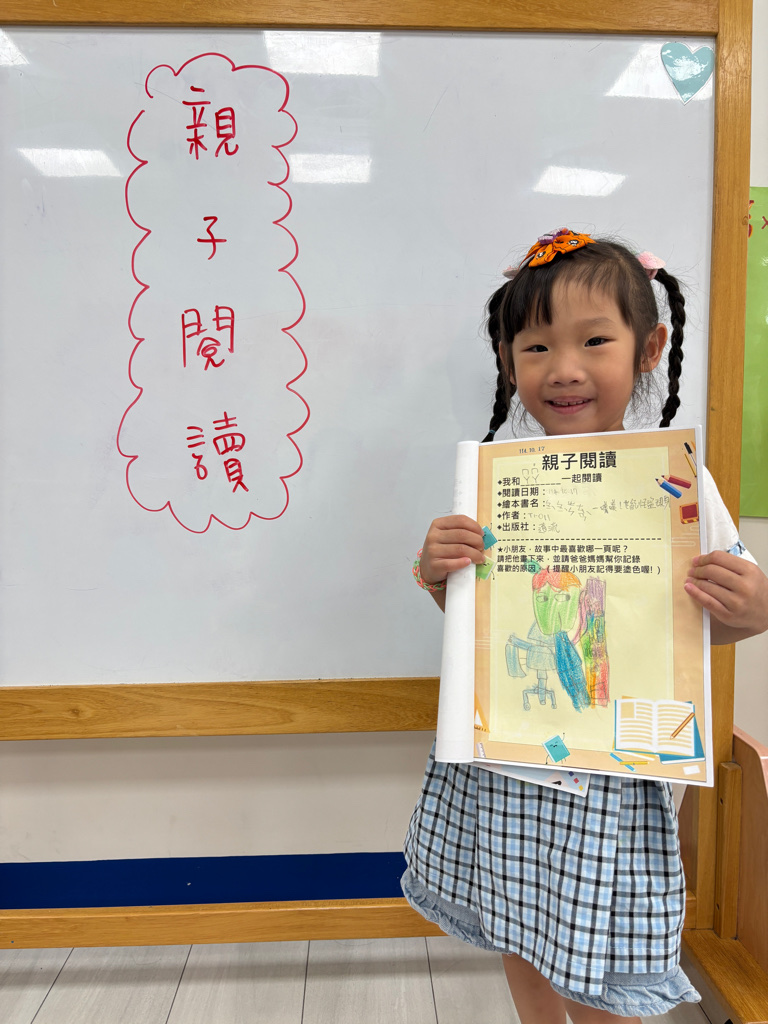 親子閱讀
114.10.17
親子閱讀
◆我和______一起閱讀
◆閱讀日期：114.10.17
◆繪本書名：
◆作者：
◆出版社：遠流
★小朋友，故事中最喜歡哪一頁呢？
請把他畫下來，並請爸爸媽媽幫你記錄
喜歡的原因。（提醒小朋友記得要塗色喔!）